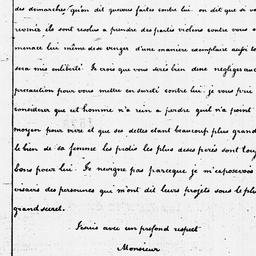 des demarches qu'on dit qu'avous faites contre lui. on dit que si vou
revinés ils sont resolus a prendre des partis violens contre vous
menace lui même de se vanger d'une maniere exemplaire
sera mis en liberté. Je crois que vous aurés bien de ne negliger aucune
precaution pour vous mettre en sureté contre lui. je vous prie
considerer que cet homme n'a rien a perdre qu'il n'a point
moyen pour vivre et que ses dettes etant beaucoup plus grand
le bien de sa femme les partis les plus desesperés sont touj
bons pour lui. Je ne signe pas parceque je m'exposerois
visavis des personnes qui m'ont dit leurs projets sous le plu
grand secret.
Je suis avec un profond respect
Monsieur